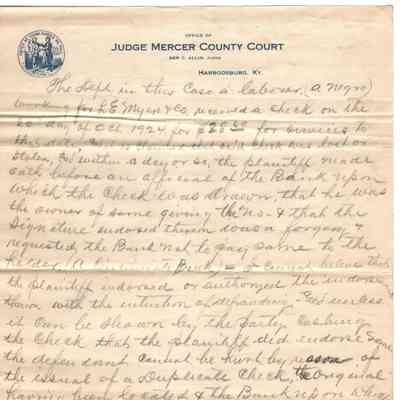 OFFICE OF
JUDGE MERCER COUNTY COURT
BEN C. ALLIN, JUDGE
HARRODSBURG, KY.
The Deft in this Case a laborer, (a Negro)
working for L.E. Myers & Co, received a check on the
20 day of Oct 1924, for for services to
that date, check was lost or
stolen, & within a day or so, the plaintiff made
oath before an official of the Bank upon
which the Check was drawn, that he was
the owner of same giving the No. & that the
signature endorsed thereon was a forgery &
requested the Bank not to pay same to the
holder, A Cincinnati Bank, I cannot believe that
the plaintiff endorsed or authorized the endorse
with the intention of defrauding, and unless
it can be shown by the party Cashing
the Check that the plaintiff did endorse same
the defendant cannot be hurt by reason of
the issual of a Duplicate Check, the original
having been located & the Bank upon